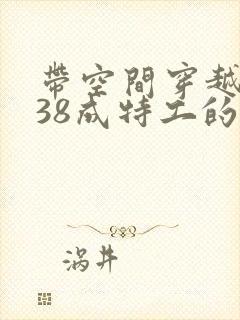 帶空間穿越
38成特工的
涡井